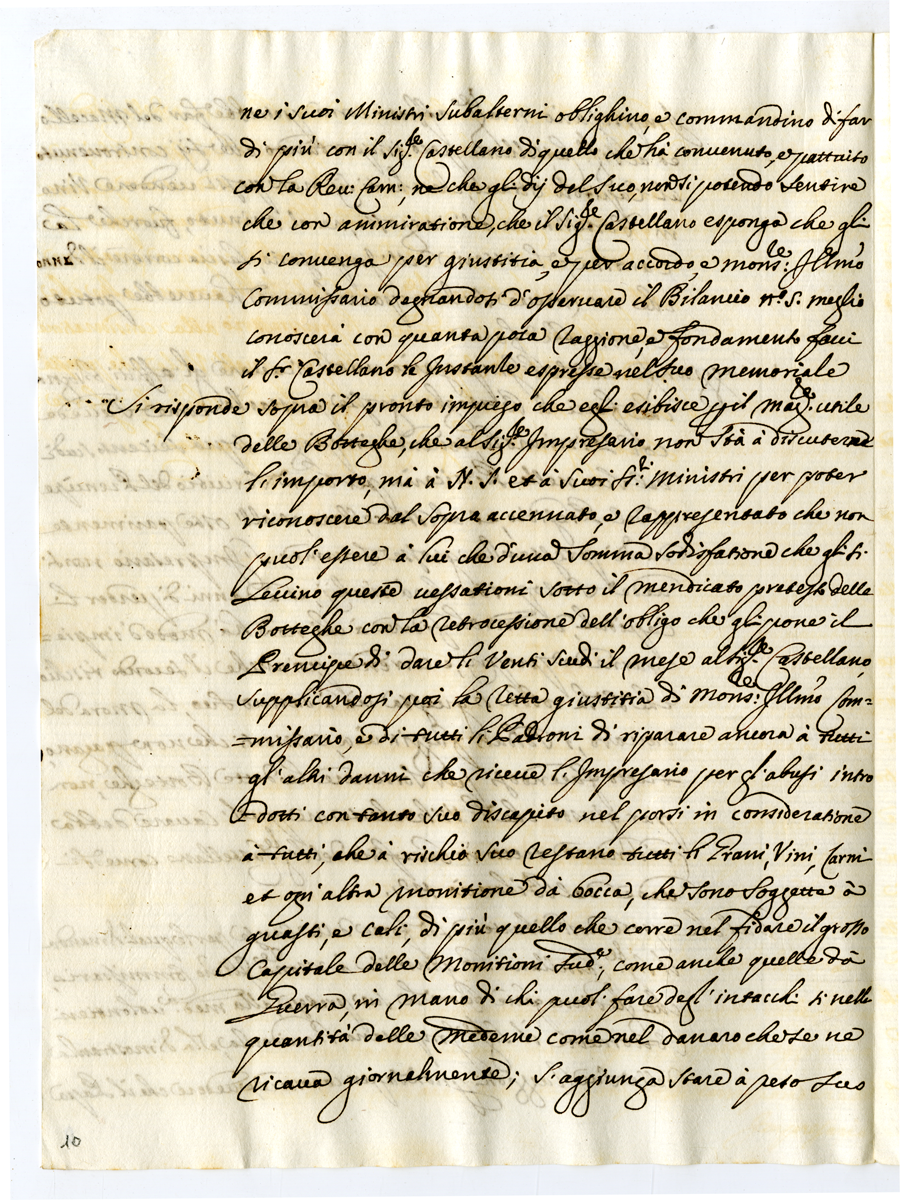 ne i suoi Ministri subalterni oblighino, e commandino di far
di più con il Sig.re Castellano di quello che hà convenuto, e pattuito
con la Rev: Cam:, ne che gli dij del suo, non si potendo sentire
che con ammiratione, che il Sig.re Castellano esponga che gli
si convenga per giustitia, e per accordo, e mons.re Illmo
Commissario degnandosi d'osservare il Bilancio n.o 5. meglio
conoscerà con quanta poca raggione, e fondamento facci
il Sr. Castellano le Instanze espresse nel suo memoriale
Si risponde sopra il pronto impiego che egl' esibisce il mag.re utile
delle Botteghe, che al Sig.re Impresario non stà à discuterne
l'importo, mà à N. S. et à suoi Sri. Ministri per poter
riconoscere dal sopra accennato, e rappresentato che non
puol' essere à lui che d'una somma sodisfatione che gli si
Levino queste vessationi sotto il mendicato pretesto delle
Botteghe con la retrocessione dell'obligo che gli pone il
Prencipe di dare li Venti scudi il mese al Sig.re Castellano,
supplicandosi poi la retta giustitia di Mons.re Illmo Com=
=missario, e di tutti li Padroni di riparare ancora à tutti
gl'altri danni che riceve l'Impresario per gl'abusi intro
=dotti con tanto suo discapito nel porsi in consideratione
à tutti, che à rischio suo restano tutti li Grani, Vini, Carni
et ogn'altra monitione dà bocca, che sono soggette à
guasti, e cali, di più quello che corre nel fidare il grosso
Capitale delle Monitioni sud.e, come anche quelle dà
Guerra, in mano di chi puol' fare degl'intacchi sì nelle
quantità delle medeme come nel danaro che se ne
ricava giornalmente; S'aggiunga stare à peso suo
10